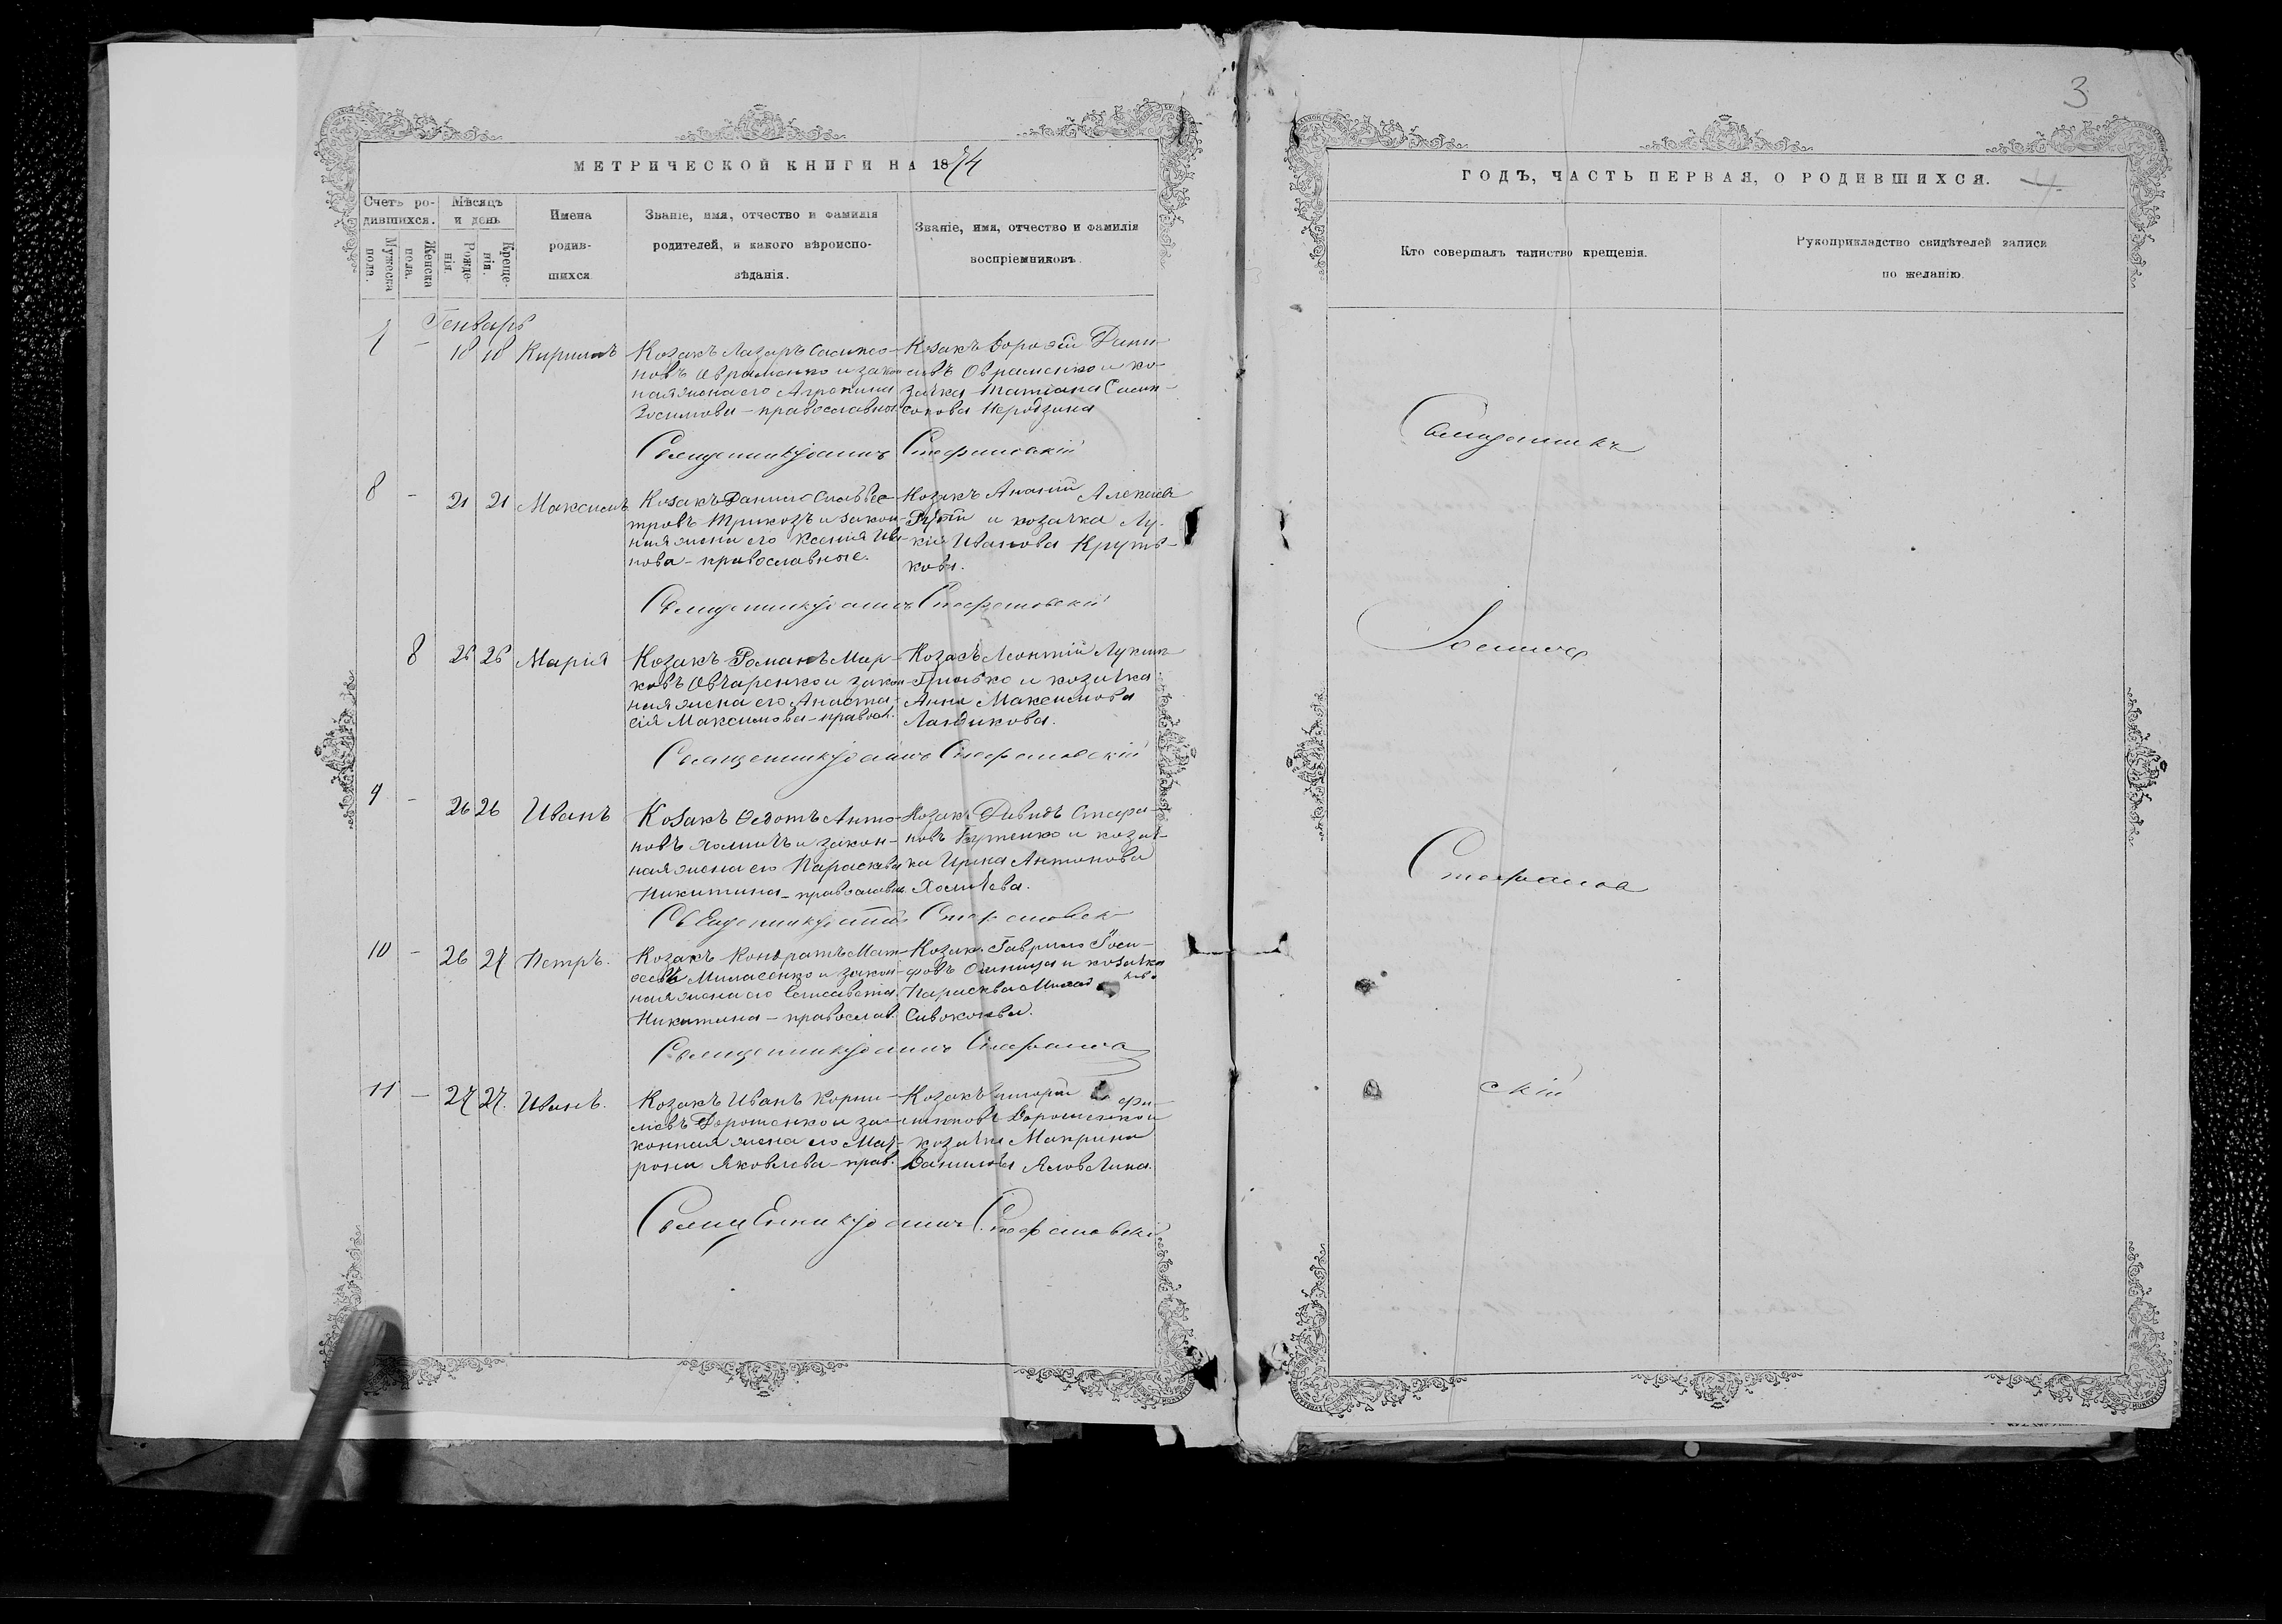 3
МЕТРИЧЕСКОЙ КНИГИ НА 1874
ГОДЪ, ЧАСТЬ ПЕРВАЯ, О РОДИВШИХСЯ.
Счетъ ро-
дившихся.
Мужеска
пола.
Женска
пола.
Мѣсяцъ
и день
Рожде-
нія.
Креще-
нія.
Имена
родив-
шихся
Званіе, имя, отчество и фамилія
родителей, и какого вѣроиспо-
вѣданія.
Званіе, имя, отчество и фамилія
воспріемниковъ.
Кто совершалъ таинство крещенія.
Рукоприкладство свидѣтелей записи
по желанію.
Генварь
7 – 18 18 Кириллъ
Козакъ Лазарь Сампсо-
новъ Авраменко и закон
ная жена его Агрепина
Зосимова – православная
Козакъ Дорофій
Авраменко и ко-
зачка Татіана Самп-
сонова
Священникъ Іоаннъ Стефановскій
8 – 21 21 Максимъ
Козакъ Данило Сильвес-
тровъ Трикозъ и закон-
ная жена его Ксенія Ива-
нова – православные.
Козакъ Ананій Алексіевъ
и козачка Лу-
кія Иванова Крутъ-
кова.
Священникъ Іоаннъ Стефановскій
8 25 25 Марія
Козакъ Романъ Мар-
ковъ Овчаренко и закон
ная жена его Анаста-
сія Максимова – правосл.
Козакъ Леонтій Лукинъ
и козачка
Анна Максимова
Ландикова.
Священникъ Іоаннъ Стефановскій
9 – 26 26 Иванъ
Козакъ Федотъ Анто-
новъ Хомичъ и закон-
ная жена его Параскева
Никитина – православн.
Козакъ Давидъ Стефа-
новъ Куценко и козач-
ка Ирина Антонова
Хомичева.
Священникъ Іоаннъ Стефановск
10 – 26 27 Петръ.
Козакъ Кондратъ Мат-
Миласенко и закон-
ная жена его Елисавета
Никитина – православ.
Козакъ Гаврило Іоси-
фовъ и козачка
Параскева
Сивоконева.
Священникъ Іоаннъ Стефановс
11 – 27 27. Иванъ.
Козакъ Иванъ Корни-
ліевъ Дорошенко и за-
конная жена его Мат-
рона Яковлева – прав.
Козакъ
Дорошенко и
козачка Макрина
Данилова
Священникъ Іоаннъ Стефановскі
Священникъ
Іоаннъ
Стефанов
скій